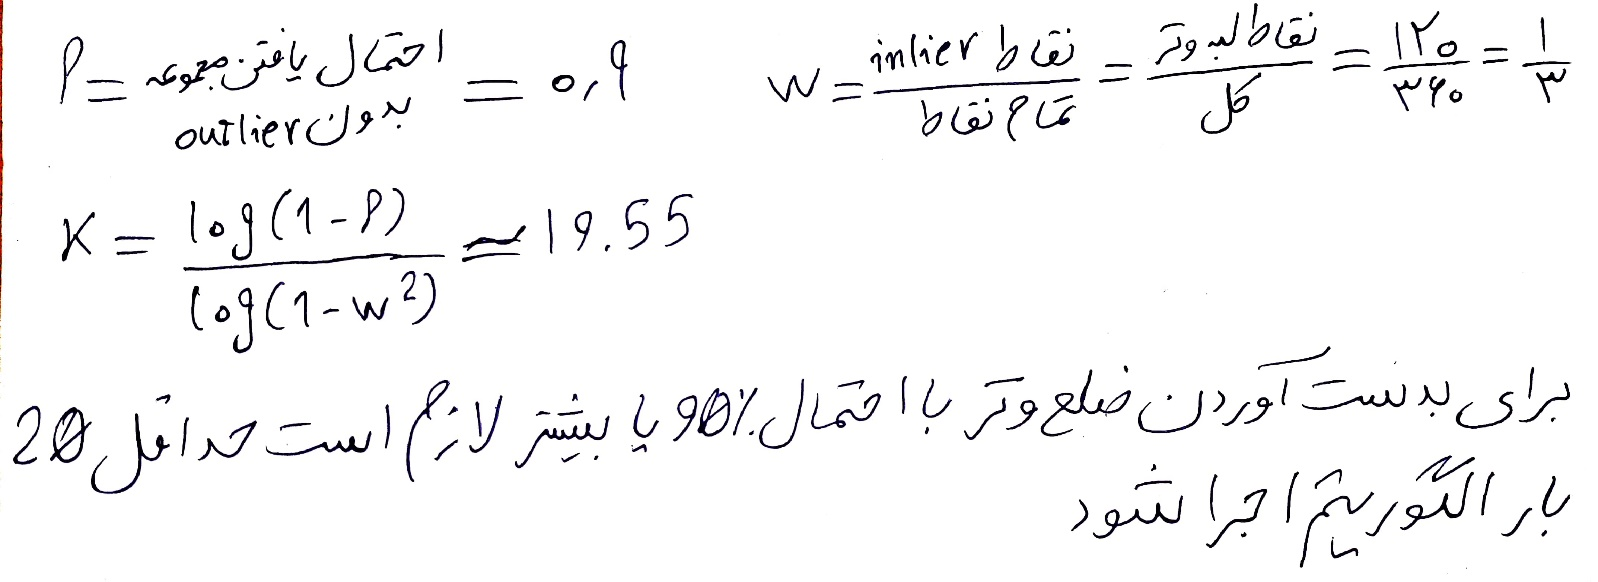 P = احتمال یافتن مجموعه بدون outlier = ۰,۹
w = نقاط inlier / تمام نقاط = نقاط لبه وتر / کل = ۱۲۰ / ۳۶۰ = ۱ / ۳
K = log(1-P) / log(1-w²) ≃ 19.55
برای بدست آوردن ضلع وتر با احتمال 90٪ یا بیشتر لازم است حداقل 20
بار الگوریتم اجرا شود